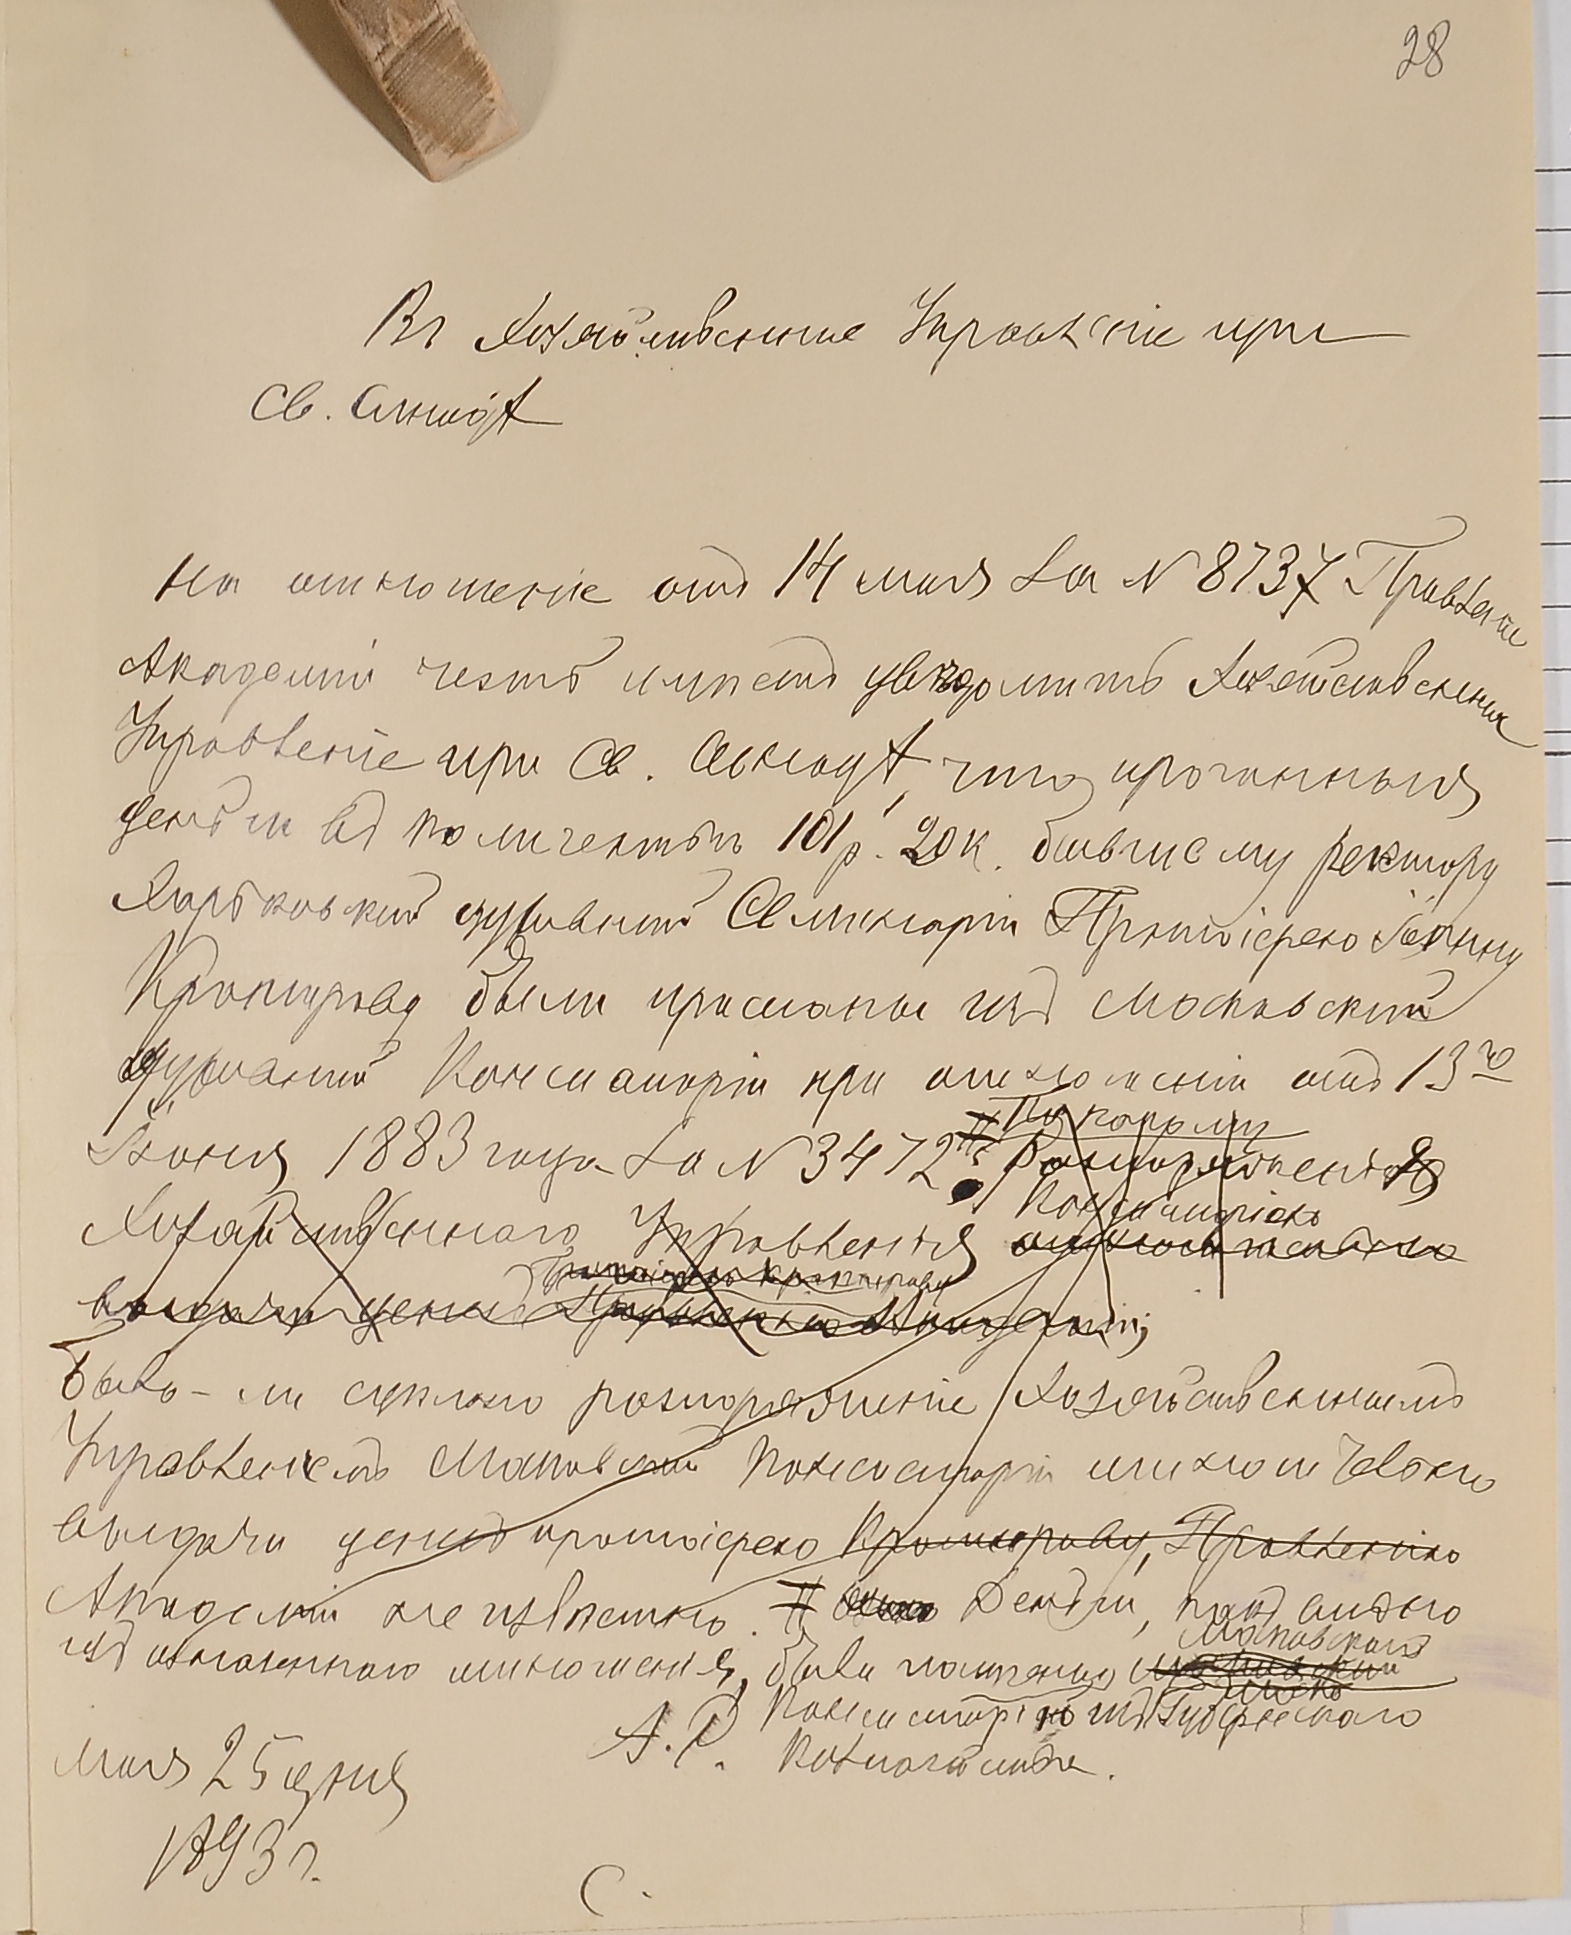 28
Въ Хозяйственное Управленіе при
Св. Синодѣ
На отношеніе отъ 14 мая за № 8737 Правленіе
Академіи честь имѣетъ увѣдомить Хозяйственное
Управленіе при Св. Синодѣ, что прогонныя
деньги въ количествѣ 101 р. 20 к. бывшему ректору
Харьковской духовной Семинаріи Протоіерею Іоанну
Кратирову были присланы изъ Московской
духовной Консисторіи при отношеніи отъ 13го
Іюня 1883 года за № 3472.
По какому
распоряженію
Консисторіею
Хозяйственнаго Управленія относительно
Протоіерею Кратирову
выдачи денегъ Правленію Академіи;
Было-ли сдѣлано распоряженіе Хозяйственнымъ
Управленіемъ Московской Консисторіи относительно
выдачи денегъ протоіерею Кратирову, Правленію
Академіи не извѣстно. Деньги, какъ видно
Московскою
изъ означеннаго отношенія, были получены
Консисторіею изъ Губернскаго
А. Р. Казначейства.
Мая 25 дня
1893 г.
С.